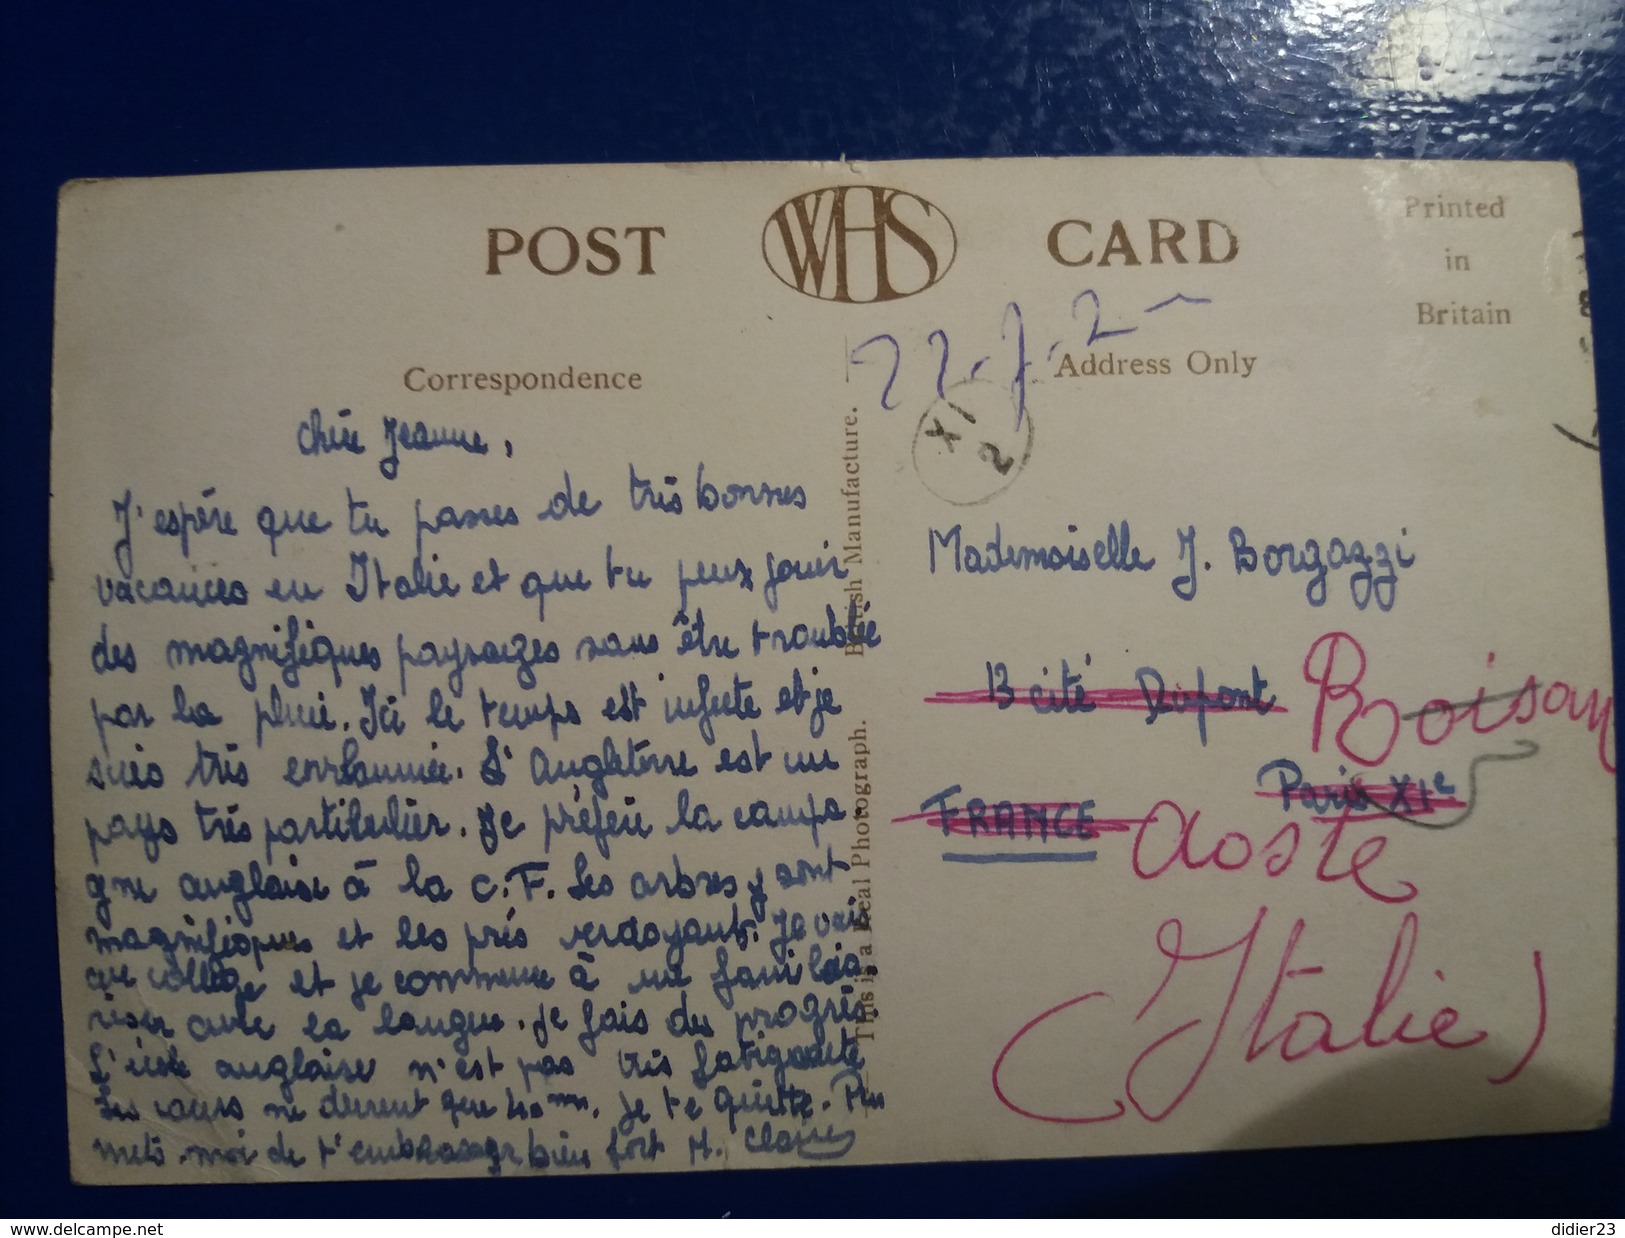 POST WHS CARD
Printed
in
Britain
Correspondence
Address Only
22.7.2
XI
2
British Manufacture.
This is a Real Photograph.
Chère Jeanne,
J'espère que tu passes de très bonnes
vacances en Italie et que tu peux jouir
des magnifiques paysages sans être troublée
par la pluie. Ici le temps est infecte et je
suis très enrhumée. L'Angleterre est un
pays très particulier. Je préfère la campa
gne anglaise à la C.F. Les arbres y sont
magnifiques et les prés verdoyants. Je vais
au collège et je commence à me familia
riser avec la langue. Je fais des progrès
L'école anglaise n'est pas très fatigante
Les cours ne durent que 40 mns. Je te quitte. Per
mets-moi de t'embrasser bien fort M. Claire
Mademoiselle J. Borgazzi
13 cité Dupont
Boisan
Paris XIe
FRANCE
Aoste
(Italie)
www.delcampe.net
didier23